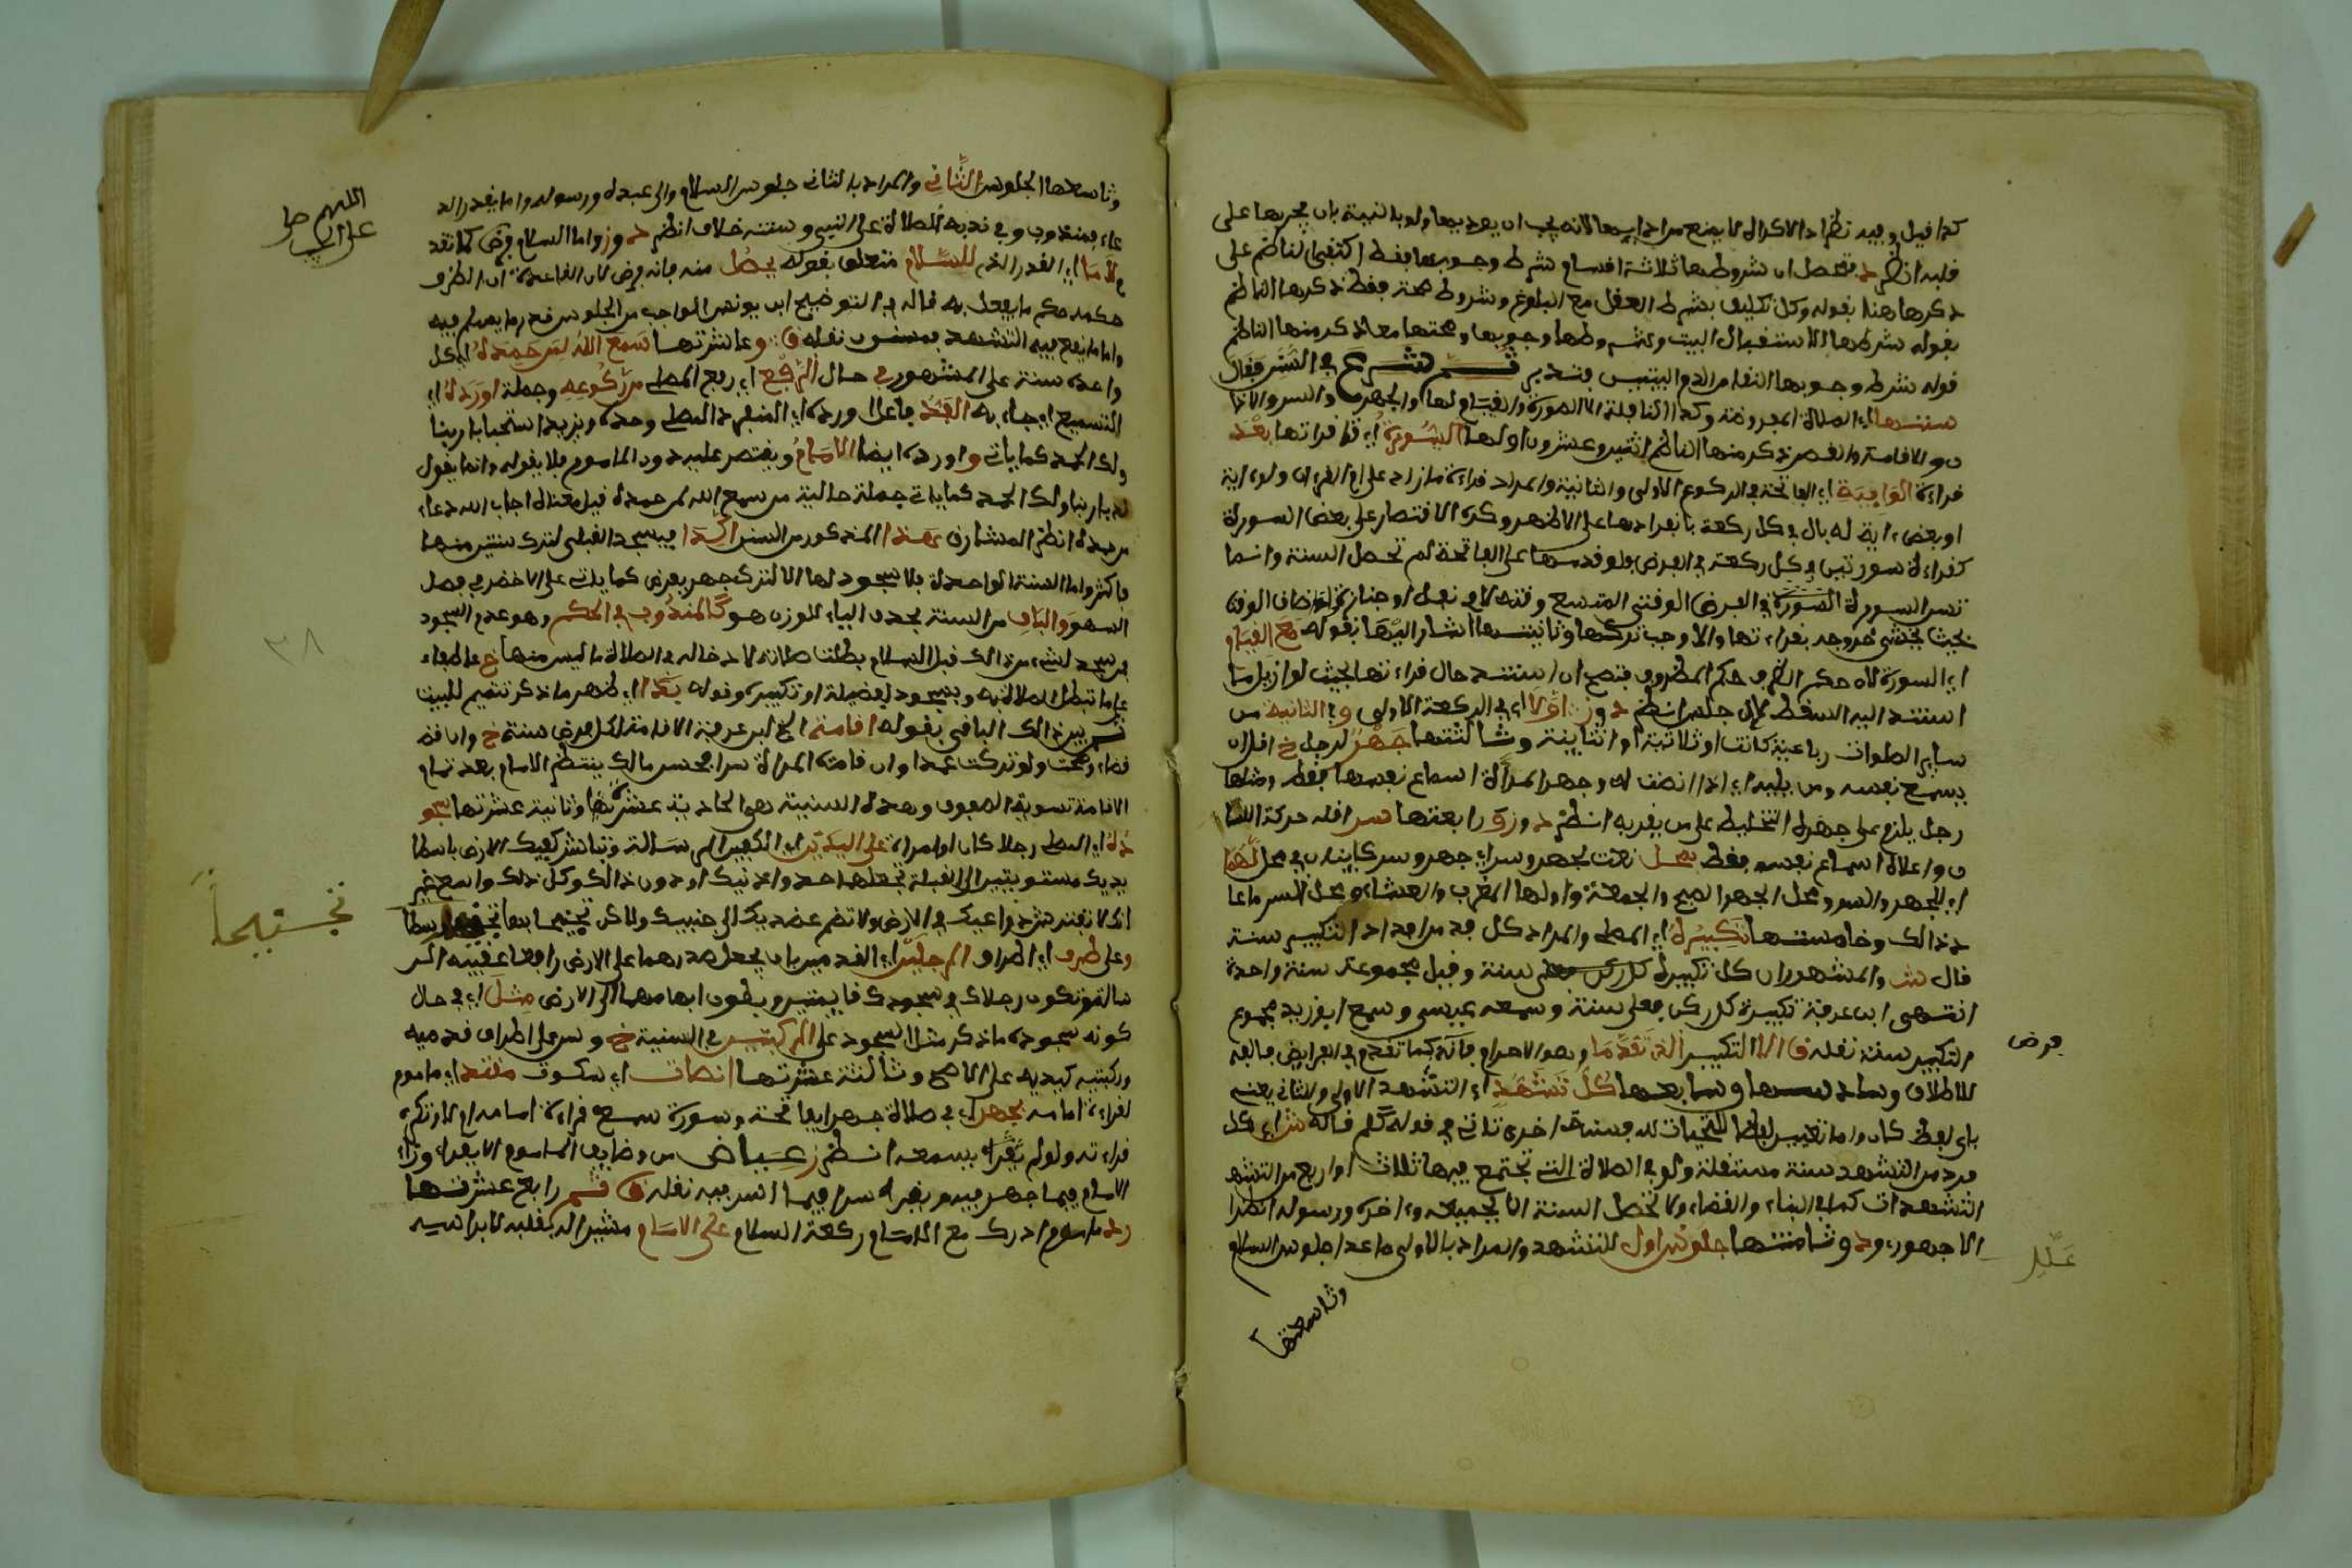 كذا قيل وفيه نظر اذ الاكراه لا يمنع من ادايها لانه يجب ان يعد بها ولو بالنية بان يجريها على
قلبه انظر د فتحصل ان شروطها ثلاثة اقسام شرط وجوبها فقط اكتفى الناظم على
ذكرها هنا بقوله وكل تكليف بشرط العقل مع البلوغ وشروط صحة فقط ذكرها الناظم
بقوله شرطها الاستقبال البيت وشروطها وجوبها وصحتها معا ذكر منها الناظم
قوله شرط وجوبها النقا من الدم البيتين فتدبر ثم شرح في السنن فقال
سننها اي الصلاة المفروضة وكذا النافلة الا السورة والقيام لها والجهر والسر والاذا
ن والاقامة والقصر ذكر منها الناظم اثنين وعشرون اولها السورة اي قراءتها بعد
قراءة الواقية اي الفاتحة في الركوع الاولى والثانية والمراد قراءة ما زاد على ام القرءان ولو ءاية
او بعض ءاية له بال في كل ركعة بانفرادها على الاظهر وكره الاقتصار على بعض السورة
كقراءة سورتين في كل ركعة في الفرض ولو قدمها على الفاتحة لم تحصل السنة وانما
تسن السورة في الفرض الوقتي المتسع وقته لا في نفل او جنازة او ضاق الوقت
بحيث يخشى خروجه بقراءتها والا وجب تركها وثانيتها اشار اليها بقوله مع القيام
اي السورة لان حكم الظرف حكم المظروف فتصح ان استند حال قراءتها بحيث لو ازيل ما
استند اليه لسقط لا ان جلس انظر د وز اولا اي في الركعة الاولى و الثانية من
ساير الصلوات رباعية كانت او ثلاثية او ثنايية وثالثتها جهر لرجل خ اقله ان
يسمع نفسه ومن يليه اي اذا انصت له وجهر المرأة اسماع نفسها فقط ومثلها
رجل يلزم على جهره التخليط على من بقربه انظر د وز و رابعتها سر اقله حركة اللسا
ن واعلاه اسماع نفسه فقط بمحل نعت لجهر وسر اي جهر وسر كاينان في محل لهما
اي للجهر والسر ومحل الجهر الصبح والجمعة واولتا المغرب والعشاء ومحل السر ما عا
د ذالك وخامستها تكبيره اي المصلي والمراد كل فرد من افراد التكبير سنة
قال ش والمشهور ان كل تكبيرة سنة وقيل مجموعه سنة واحدة
انتهى ابن عرفة تكبيرة كل ركن فعلي سنة وسمعه عيسى وسمع ابو زيد مجموع
التكبير سنة نقله ق الا التكبير الذي تقدما وهو الاحرام فانه كما تقدم في الفرايض فالفه
للاطلاق وسادستها وسابعها كل تشهد اي التشهد الاول والثاني يعني
باي لفظ كان واما تعيين لفظ التحيات لله فسنة اخرى تاتي في قوله كلم قاله ش اي كل
فرد من التشهد سنة مستقلة ولو في الصلاة التي تجتمع فيها ثلاث او اربع من التشهد
التشهدات كما في البناء والقضاء ولا تحصل السنة الا بجميعه وءاخره ورسوله انظر
الاجهوري ود وثامنتها جلوس اول للتشهد والمراد بالاول ما عدا جلوس السلام
وتاسعتها
فرض
وتاسعها الجلوس الثاني والمراد بالثاني جلوس السلام والى عبده ورسوله واما بقدر الد
عاء فمندوب وفي ندبه للصلاة على النبي وسنته خلاف انظر د وز واما السلام ففرض كما تقد
م لا ما اي القدر الذي للسلام متعلق بقوله يحصل منه فانه فرض لان القاعدة ان الظرف
حكمه حكم ما يفعل به قاله في التوضيح ابن يونس الواجب من الجلوس قدر ما يسلم فيه
واما ما يقع فيه التشهد فمسنون نقله ق وعاشرتها سمع الله لمن حمده اي كل
واحدة سنة على المشهور في حال الرفع اي رفع المصلي من ركوعه وجملة اورده اي
التسميع اي جاء به الفذ فاعل اورده اي المنفرد المصلي وحده ويزيد استحبابا ربنا
ولك الحمد كما ياتي و اورده ايضا الامام ويقتصر عليه دون الماموم فلا يقوله وانما يقول
ربنا ولك الحمد كما ياتي جملة حالية من سمع الله لمن حمده قيل معناه اجاب الله دعاء
من حمده انظر المشارق هذا المذكور من السنن اكدا فيسجد القبلي لترك سنتين منها
فاكثر واما السنة الواحدة فلا سجود لها الا لترك جهر بفرض كما ياتي على الاخضر في فصل
السهو والباقي من السنة بحذف الياء للوزن هو كالمندوب في الحكم وهو عدم السجود
من سجد لشيء من ذالك قبل السلام بطلت صلاته لادخاله في الصلاة ما ليس منها خ عاطفا
على ما تبطل الصلاة به وبسجود لفضيلة او تكبيرة وقوله بدا اي ظهر ما ذكر تتميم للبيت
ثم بين ذالك الباقي بقوله اقامة الخ ابن عرفة الاقامة لكل فرض سنة خ وان قضاء
وصحت ولو تركت عمدا وان اقامت المرأة سرا فحسن مالك ينتظر الامام بعد تمام
الاقامة تسوية الصفوف وهذه السنية هي الحادية عشرتها وثانية عشرتها سجو
ده اي المصلي رجلا كان او امرأة على اليدين اي الكفين الرسالة وتباشر بكفيك الارض باسطا
يديك مستويتين الى القبلة تجعلهما حذو اذنيك او دون ذالك وكل ذلك واسع غير
انك لا تفترش ذراعيك في الارض ولا تضم عضديك الى جنبيك ولاكن تجنح بهما تجنيحا وسطا
وعلى طرف اي اطراف الرجلين اي القدمين بان يجعل صدرهما على الارض رافعا عقبيه الر
سالة وتكون رجلاك في سجودك قايمتين وبطون ابهامهما الى الارض مثل اي في حال
كونه سجوده ما ذكر مثل السجود على الركبتين في السنية خ وسن على اطراف قدميه
وركبتيه كيديه على الاصح وثالثة عشرتها انصات اي سكوت مقتد اي ماموم
لقراءة امامه بجهر اي في صلاة جهر الفاتحة وسورة سمع قراءة امامه ام لا وتكره
قراءته ولو لم يقرا بسمعه انظر ز عياض من وظايف الماموم الا يقرا وراء
الامام فيما جهر فيه ويقرا سرا فيما اسر فيه نقله ق ثم رابع عشرتها
رد ماموم ادرك مع الامام ركعة السلام على الامام مشيرا له بقلبه لا براسه
اللهم صل
تجنيحا
٣٨